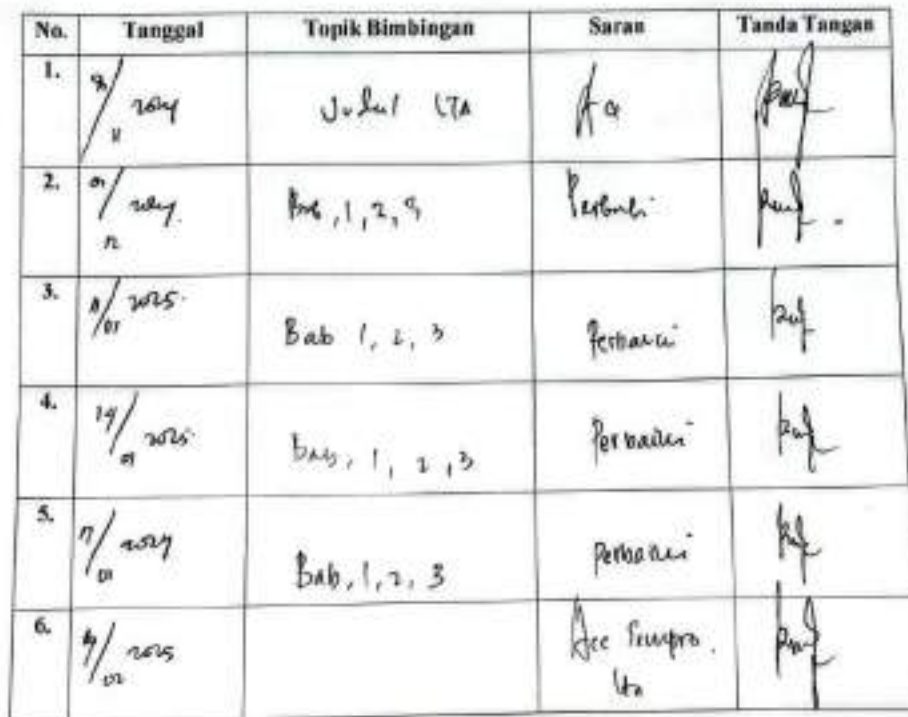 No. Tanggal Topik Bimbingan Saran Tanda Tangan
1. 2024 Judul LTA Acc
11
2. 2024 Bab, 1, 2, 3 Perbaiki
12
3. 2025
01 Bab 1, 2, 3 Perbaiki
4. 14/01 2025 Bab, 1, 2, 3 Perbaiki
5. 17/01 2024 Bab, 1, 2, 3 Perbaiki
6. 02 2025 Acc Sempro
lta